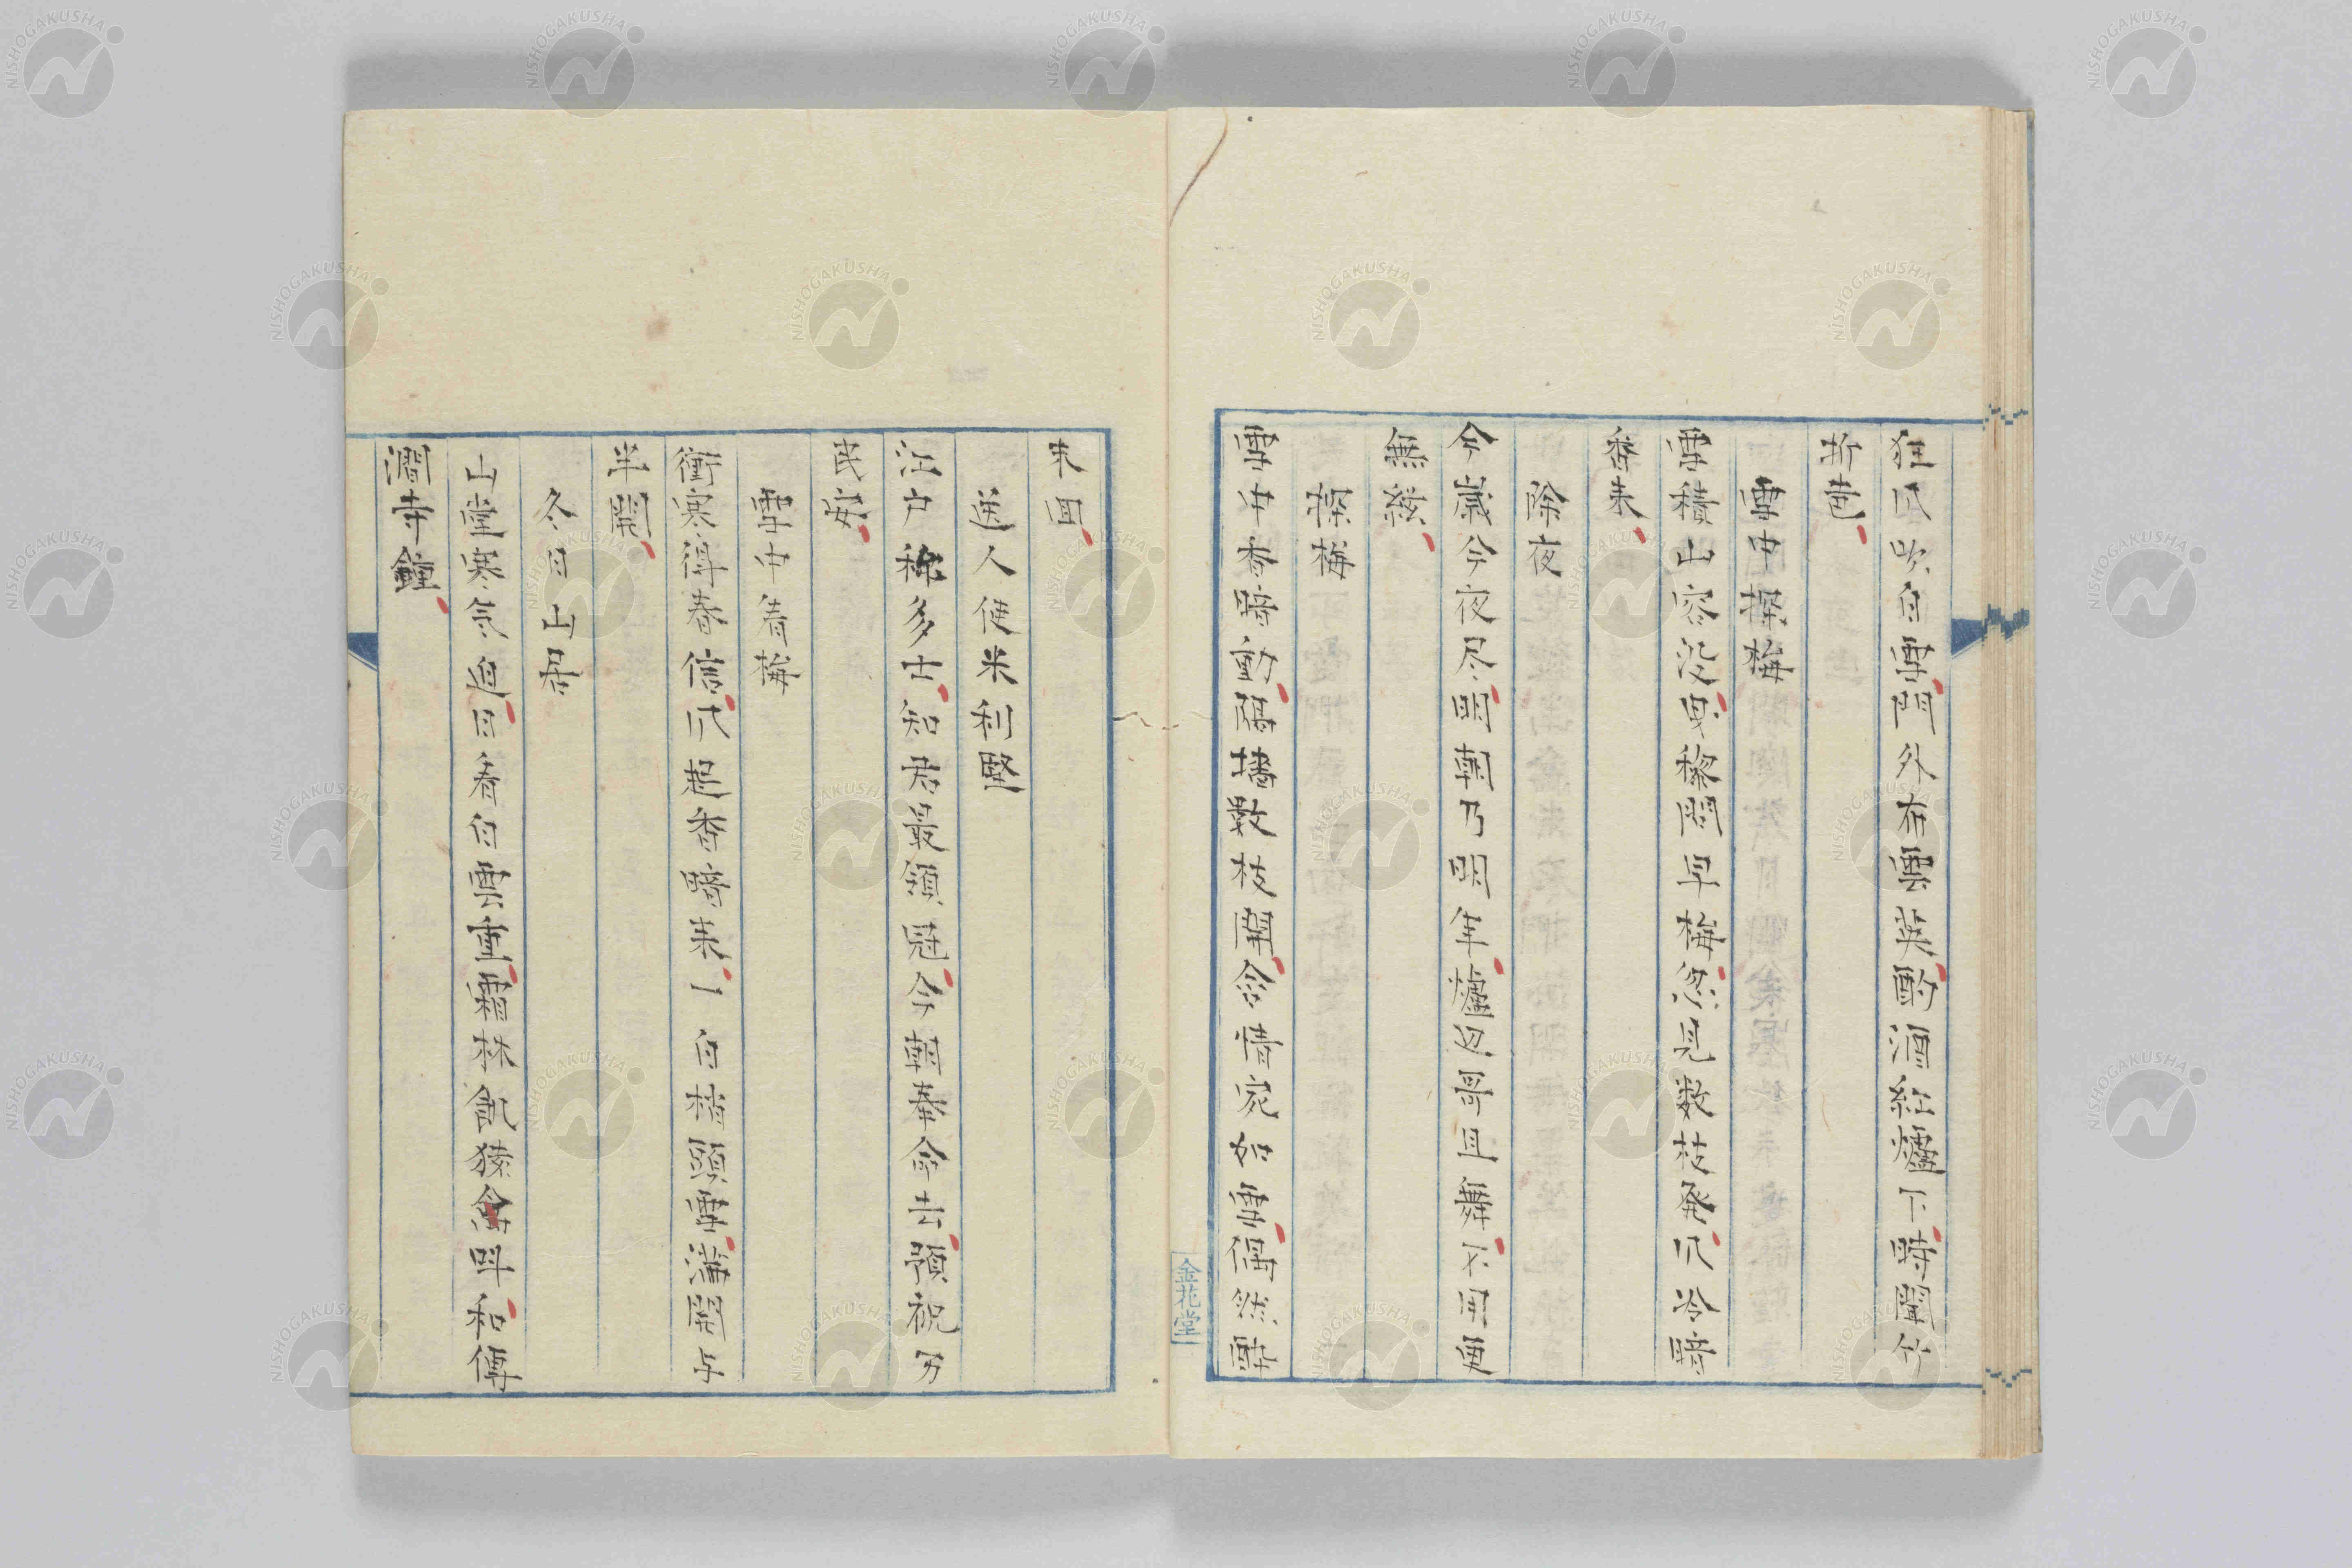 狂风吹白雪門外布雲英酌酒紅爐下時聞竹
折声
雪中探梅
雪積山容没曳藜問早梅忽見数枝発风冷暗
香来
除夜
今歳今夜尽明朝乃明年爐辺哥且舞不用更
無
探梅
雪中香暗動隔墻数枝開念惜宛如雪偶然酔
金花堂
未回
送人使米利堅
江戸称多士知君最領冠今朝奉命去預祝万
民安
雪中看梅
衝寒得春信风起香暗来一白梢頭雪満開与
半開
冬日山居
山堂寒気迫日看白雲重霜林飢猿禽叫和傳
澗寺鐘
NISHOGAKUSHA